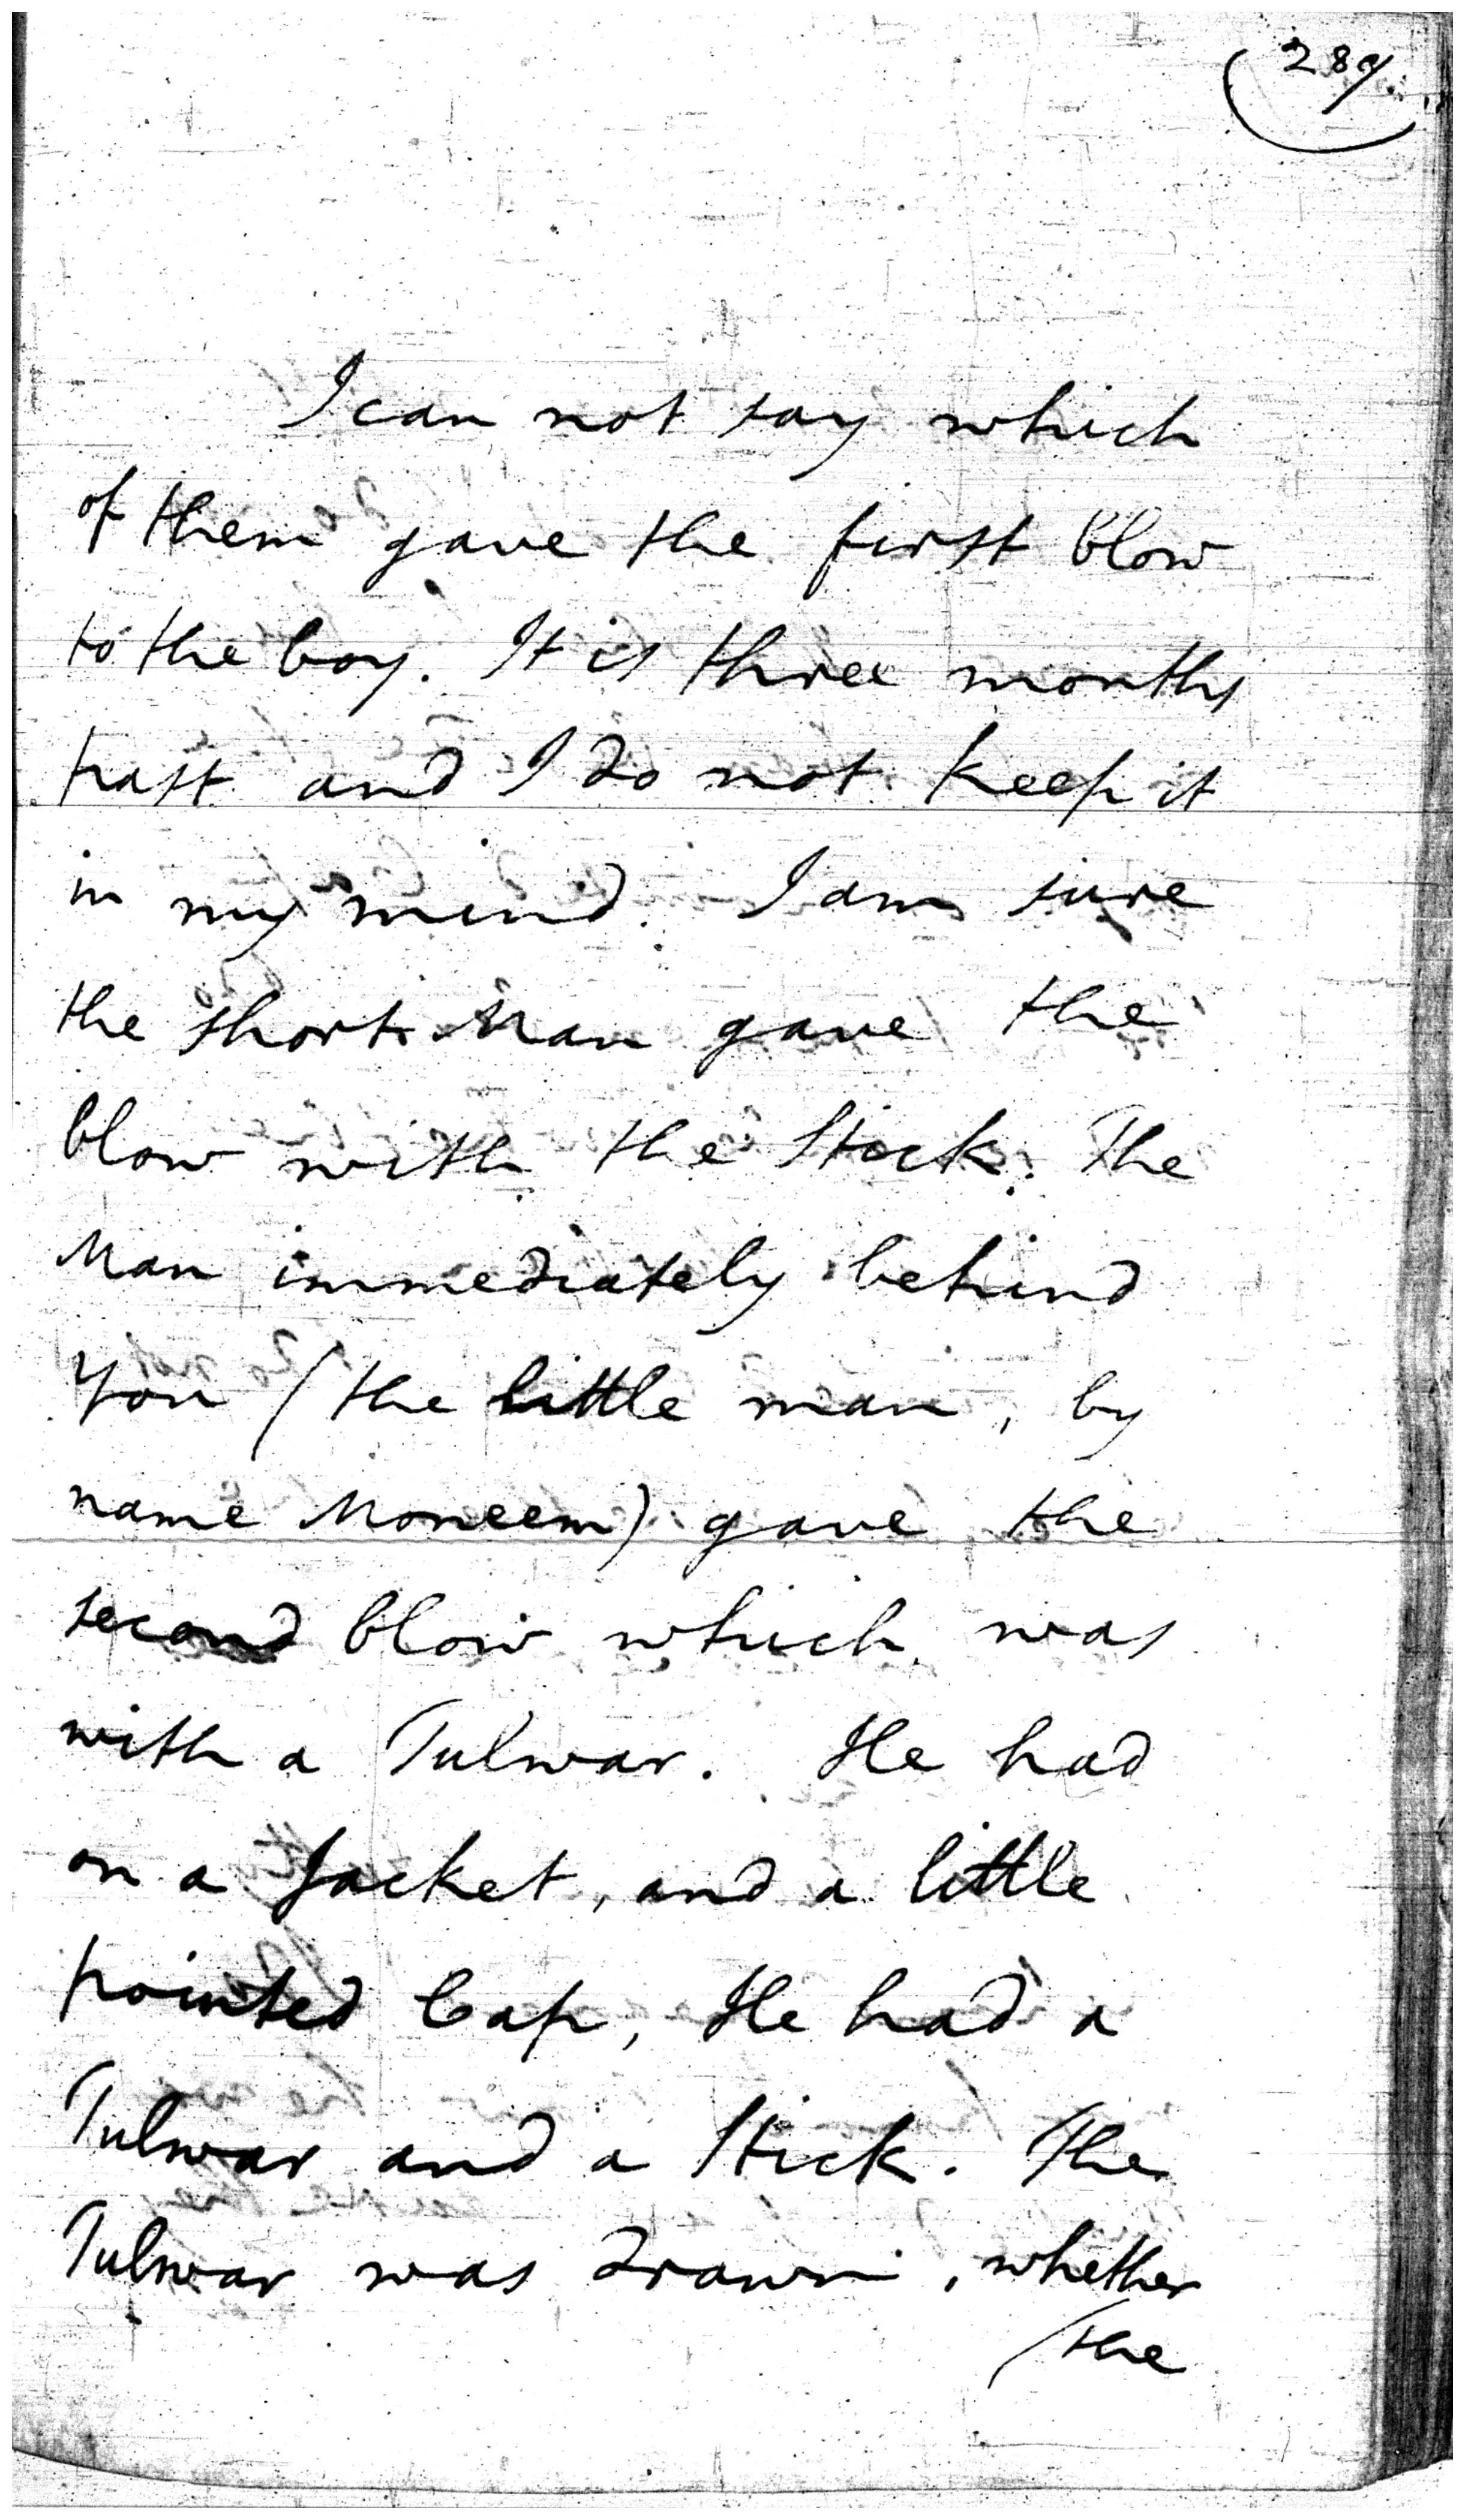 289.
I can not say which
of them gave the first blow
to the boy. It is three months
past and I do not keep it
in my mind. I am sure
the short Man gave the
blow with the Stick. The
Man immediately behind
You (the little man, by
name Moneem) gave the
second blow which was
with a Tulwar. He had
on a Jacket, and a little
pointed Cap, He had a
Tulwar and a Stick. The
Tulwar was drawn, whether
(the